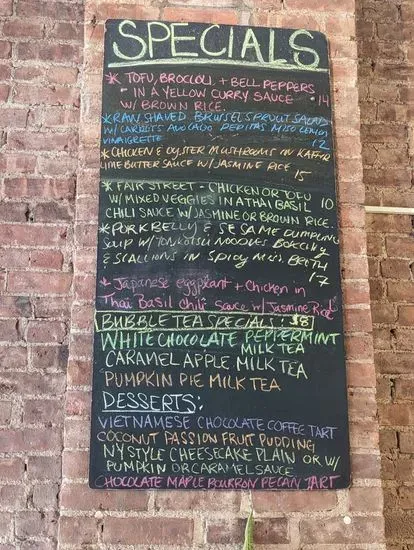 SPECIALS
* TOFU, BROCCOLI, + BELL PEPPERS
- IN A YELLOW CURRY SAUCE - 14
W/ BROWN RICE.
* RAW SHAVED BRUSSEL SPROUT SALAD
W/ CARROTS AVOCADO PEPITAS MISO LEMON
VINAIGRETTE 12
* CHICKEN & OYSTER MUSHROOMS IN KAFFIR
LIME BUTTER SAUCE W/ JASMINE RICE
15
* FAIR STREET - CHICKEN OR TOFU 10
W/ MIXED VEGGIES IN A THAI BASIL
CHILI SAUCE W/ JASMINE OR BROWN RICE.
* PORK BELLY & SESAME DUMPLING
SOUP W/ TONKOTSU NOODLES BOK CHOY
& SCALLIONS IN SPICY MISO BROTH
17
* Japanese eggplant + Chicken in
Thai Basil Chili Sauce w/ Jasmine Rice
BUBBLE TEA SPECIALS: $8
WHITE CHOCOLATE PEPPERMINT
MILK TEA
CARAMEL APPLE MILK TEA
PUMPKIN PIE MILK TEA
DESSERTS:
VIETNAMESE CHOCOLATE COFFEE TART
COCONUT PASSION FRUIT PUDDING
NY STYLE CHEESECAKE PLAIN OR W/
PUMPKIN OR CARAMEL SAUCE
CHOCOLATE MAPLE BOURBON PECAN TART